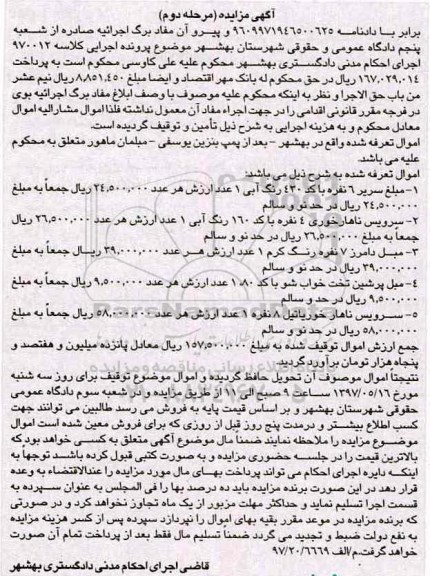 آگهی مزایده (مرحله دوم)
برابر با دادنامه ۹۶۰۹۹۷۱۹۴۶۵۰۰۶۲۵ و پیرو آن مفاد برگ اجرائیه صادره از شعبه
پنجم دادگاه عمومی و حقوقی شهرستان بهشهر موضوع پرونده اجرایی کلاسه ۹۷۰۰۱۲
اجرای احکام مدنی دادگستری بهشهر محکوم علیه علی کاوسی محکوم است به پرداخت
۱۶۷,۰۲۹,۰۱۴ ریال در حق محکوم له بانک مهر اقتصاد و ایضا مبلغ ۸,۸۵۱,۴۵۰ ریال نیم عشر
من باب حق الاجرا و نظر به اینکه محکوم علیه موصوف با وصف ابلاغ مفاد برگ اجرائیه بوی
در فرجه مقرر قانونی اقدامی را در جهت اجراء مفاد آن معمول نداشته فلذا اموال مشارالیه اموال
معادل محکوم و به هزینه اجرایی به شرح ذیل تأمین و توقیف گردیده است.
اموال تعرفه شده واقع در بهشهر - بعد از پمپ بنزین یوسفی - مبلمان ماهور متعلق به محکوم
علیه می باشد.
اموال تعرفه شده به شرح ذیل می باشد:
۱- مبلغ سریر ۶ نفره با کد ۴۳۰ رنگ آبی ۱ عدد ارزش هر عدد ۲۴,۵۰۰,۰۰۰ ریال جمعاً به مبلغ
۲۴,۵۰۰,۰۰۰ ریال در حد نو و سالم
۲- سرویس ناهارخوری ۴ نفره با کد ۱۶۰ رنگ آبی ۱ عدد ارزش هر عدد ۲۶,۵۰۰,۰۰۰ ریال
جمعاً به مبلغ ۲۶,۵۰۰,۰۰۰ ریال در حد نو و سالم
۳- مبل دامرز ۷ نفره رنگ کرم ۱ عدد ارزش هر عدد ۳۹,۰۰۰,۰۰۰ ریال جمعاً به مبلغ
۳۹,۰۰۰,۰۰۰ ریال در حد نو و سالم
۴- مبل پرشین تخت خواب شو با کد ۸۰ ۱ عدد ارزش هر عدد ۹,۵۰۰,۰۰۰ ریال جمعاً به مبلغ
۹,۵۰۰,۰۰۰ ریال در حد و سالم
۵- سرویس ناهار خوریاتیل ۸ نفره ۱ عدد ارزش هر عدد ۵۸,۰۰۰,۰۰۰ ریال جمعاً به مبلغ
۵۸,۰۰۰,۰۰۰ ریال در حد نو و سالم
جمع ارزش اموال توقیف شده به مبلغ ۱۵۷,۵۰۰,۰۰۰ ریال معادل پانزده میلیون و هفتصد و
پنجاه هزار تومان برآورد گردید
نتیجتا اموال موصوف آن تحویل حافظ گردیده و اموال موضوع توقیف برای روز سه شنبه
مورخ ۱۳۹۷/۰۵/۱۶ ساعت ۹ صبح الی ۱۱ از طریق مزایده و در شعبه سوم دادگاه عمومی
حقوقی شهرستان بهشهر و بر اساس قیمت پایه به فروش می رسد طالبین می توانند جهت
کسب اطلاع بیشتر و درمدت پنج روز قبل از روزی که برای فروش معین شده است اموال
موضوع مزایده را ملاحظه نمایند ضمناً مال موضوع آگهی متعلق به کسی خواهد بود که
بالاترین قیمت را در جلسه حضوری مزایده و به صورت کتبی قبول کرده باشد توجهاً به
اینکه دایره اجرای احکام می تواند پرداخت بهای مال مورد مزایده را عندالاقتضاء به وعده
قرار دهد در این صورت برنده مزایده باید ده درصد بها را فی المجلس به عنوان سپرده به
قسمت اجرا تسلیم نماید و حداکثر مهلت مزبور از یک ماه تجاوز نخواهد کرد و در صورتی
که برنده مزایده در موعد مقرر بقیه بهای اموال را نپردازد سپرده پس از کسر هزینه مزایده
به نفع دولت ضبط و تجدید می گردد ضمناً تسلیم مال فقط بعد از پرداخت تمام آن صورت
خواهد گرفت.م/الف ۹۷/۲۰/۶۶۶۹
قاضی اجرای احکام مدنی دادگستری بهشهر